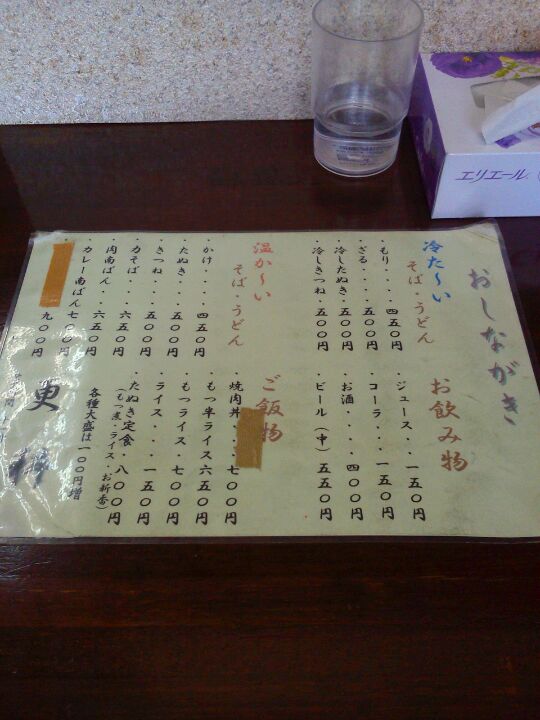 エリエール
おしながき
冷た〜い
そば・うどん
・もり・・・・四五〇円
・ざる・・・・五〇〇円
・冷したぬき・五〇〇円
・冷しきつね・五五〇円
温か〜い
そば・うどん
・かけ・・・・四五〇円
・たぬき・・・五〇〇円
・きつね・・・五〇〇円
・力そば・・・六五〇円
・肉南ばん・・六五〇円
・カレー南ばん七〇〇円
九〇〇円
お飲み物
・ジュース・・一五〇円
・コーラ・・・一五〇円
・お酒・・・・四〇〇円
・ビール(中)五五〇円
ご飯物
・焼肉丼・七〇〇円
・もつ半ライス六五〇円
・もつライス・七〇〇円
・ライス・・・一五〇円
・たぬき定食・八〇〇円
(もつ煮・ライス・お新香)
各種大盛は一〇〇円増
更科